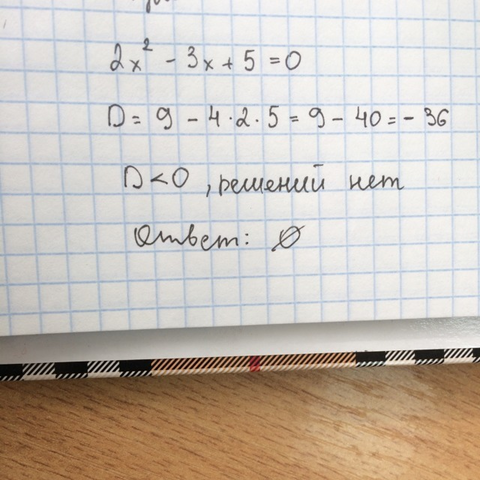 2x² - 3x + 5 = 0
D = 9 - 4 · 2 · 5 = 9 - 40 = - 36
D < 0 , решений нет
Ответ: ∅